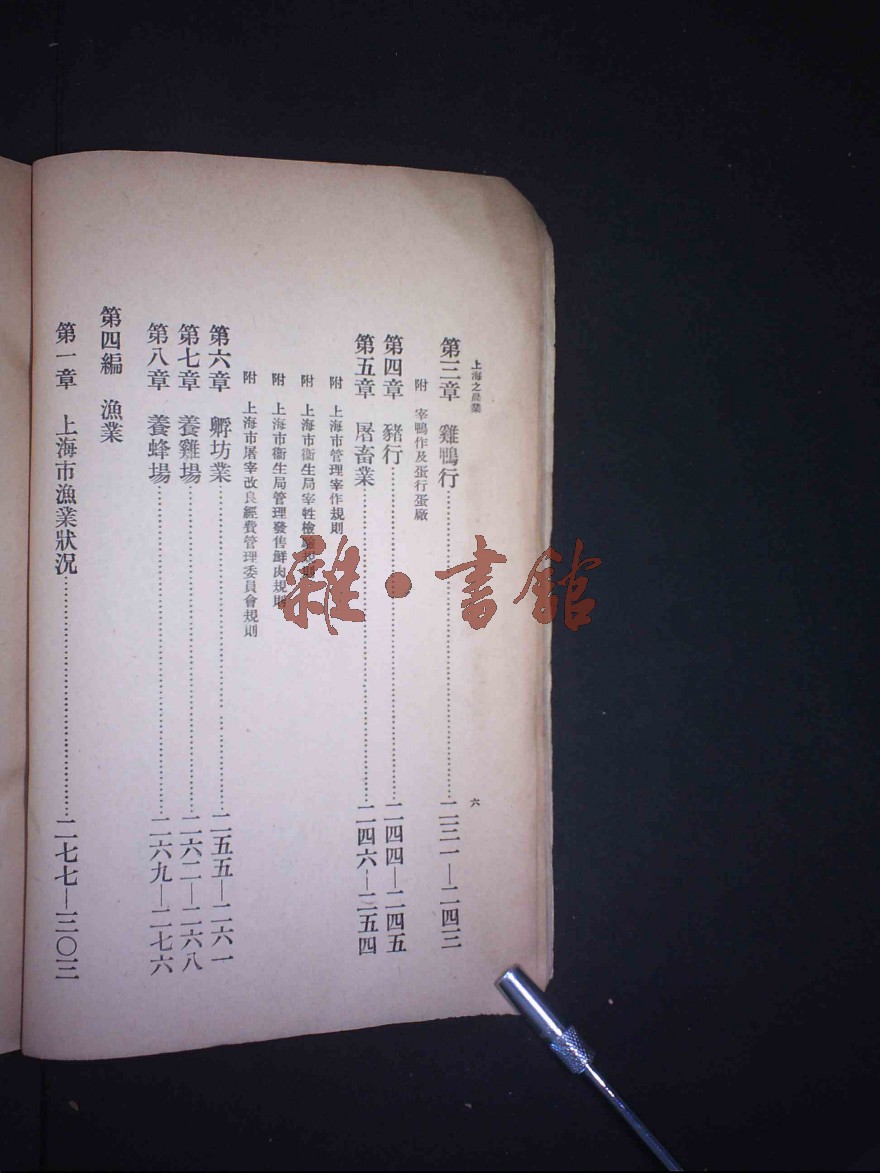 上海之農業
六
第三章　雞鴨行……二三一—二四三
附　宰鴨作及蛋行蛋廠
第四章　豬行……二四四—二四五
第五章　屠畜業……二四六—二五四
附　上海市管理宰作規則
附　上海市衞生局宰牲檢
附　上海市衞生局管理發售鮮肉規則
附　上海市屠宰改良經費管理委員會規則
第六章　孵坊業……二五五—二六一
第七章　養雞場……二六二—二六八
第八章　養蜂場……二六九—二七六
第四編　漁業
第一章　上海市漁業狀況……二七七—三〇三
雜·書館